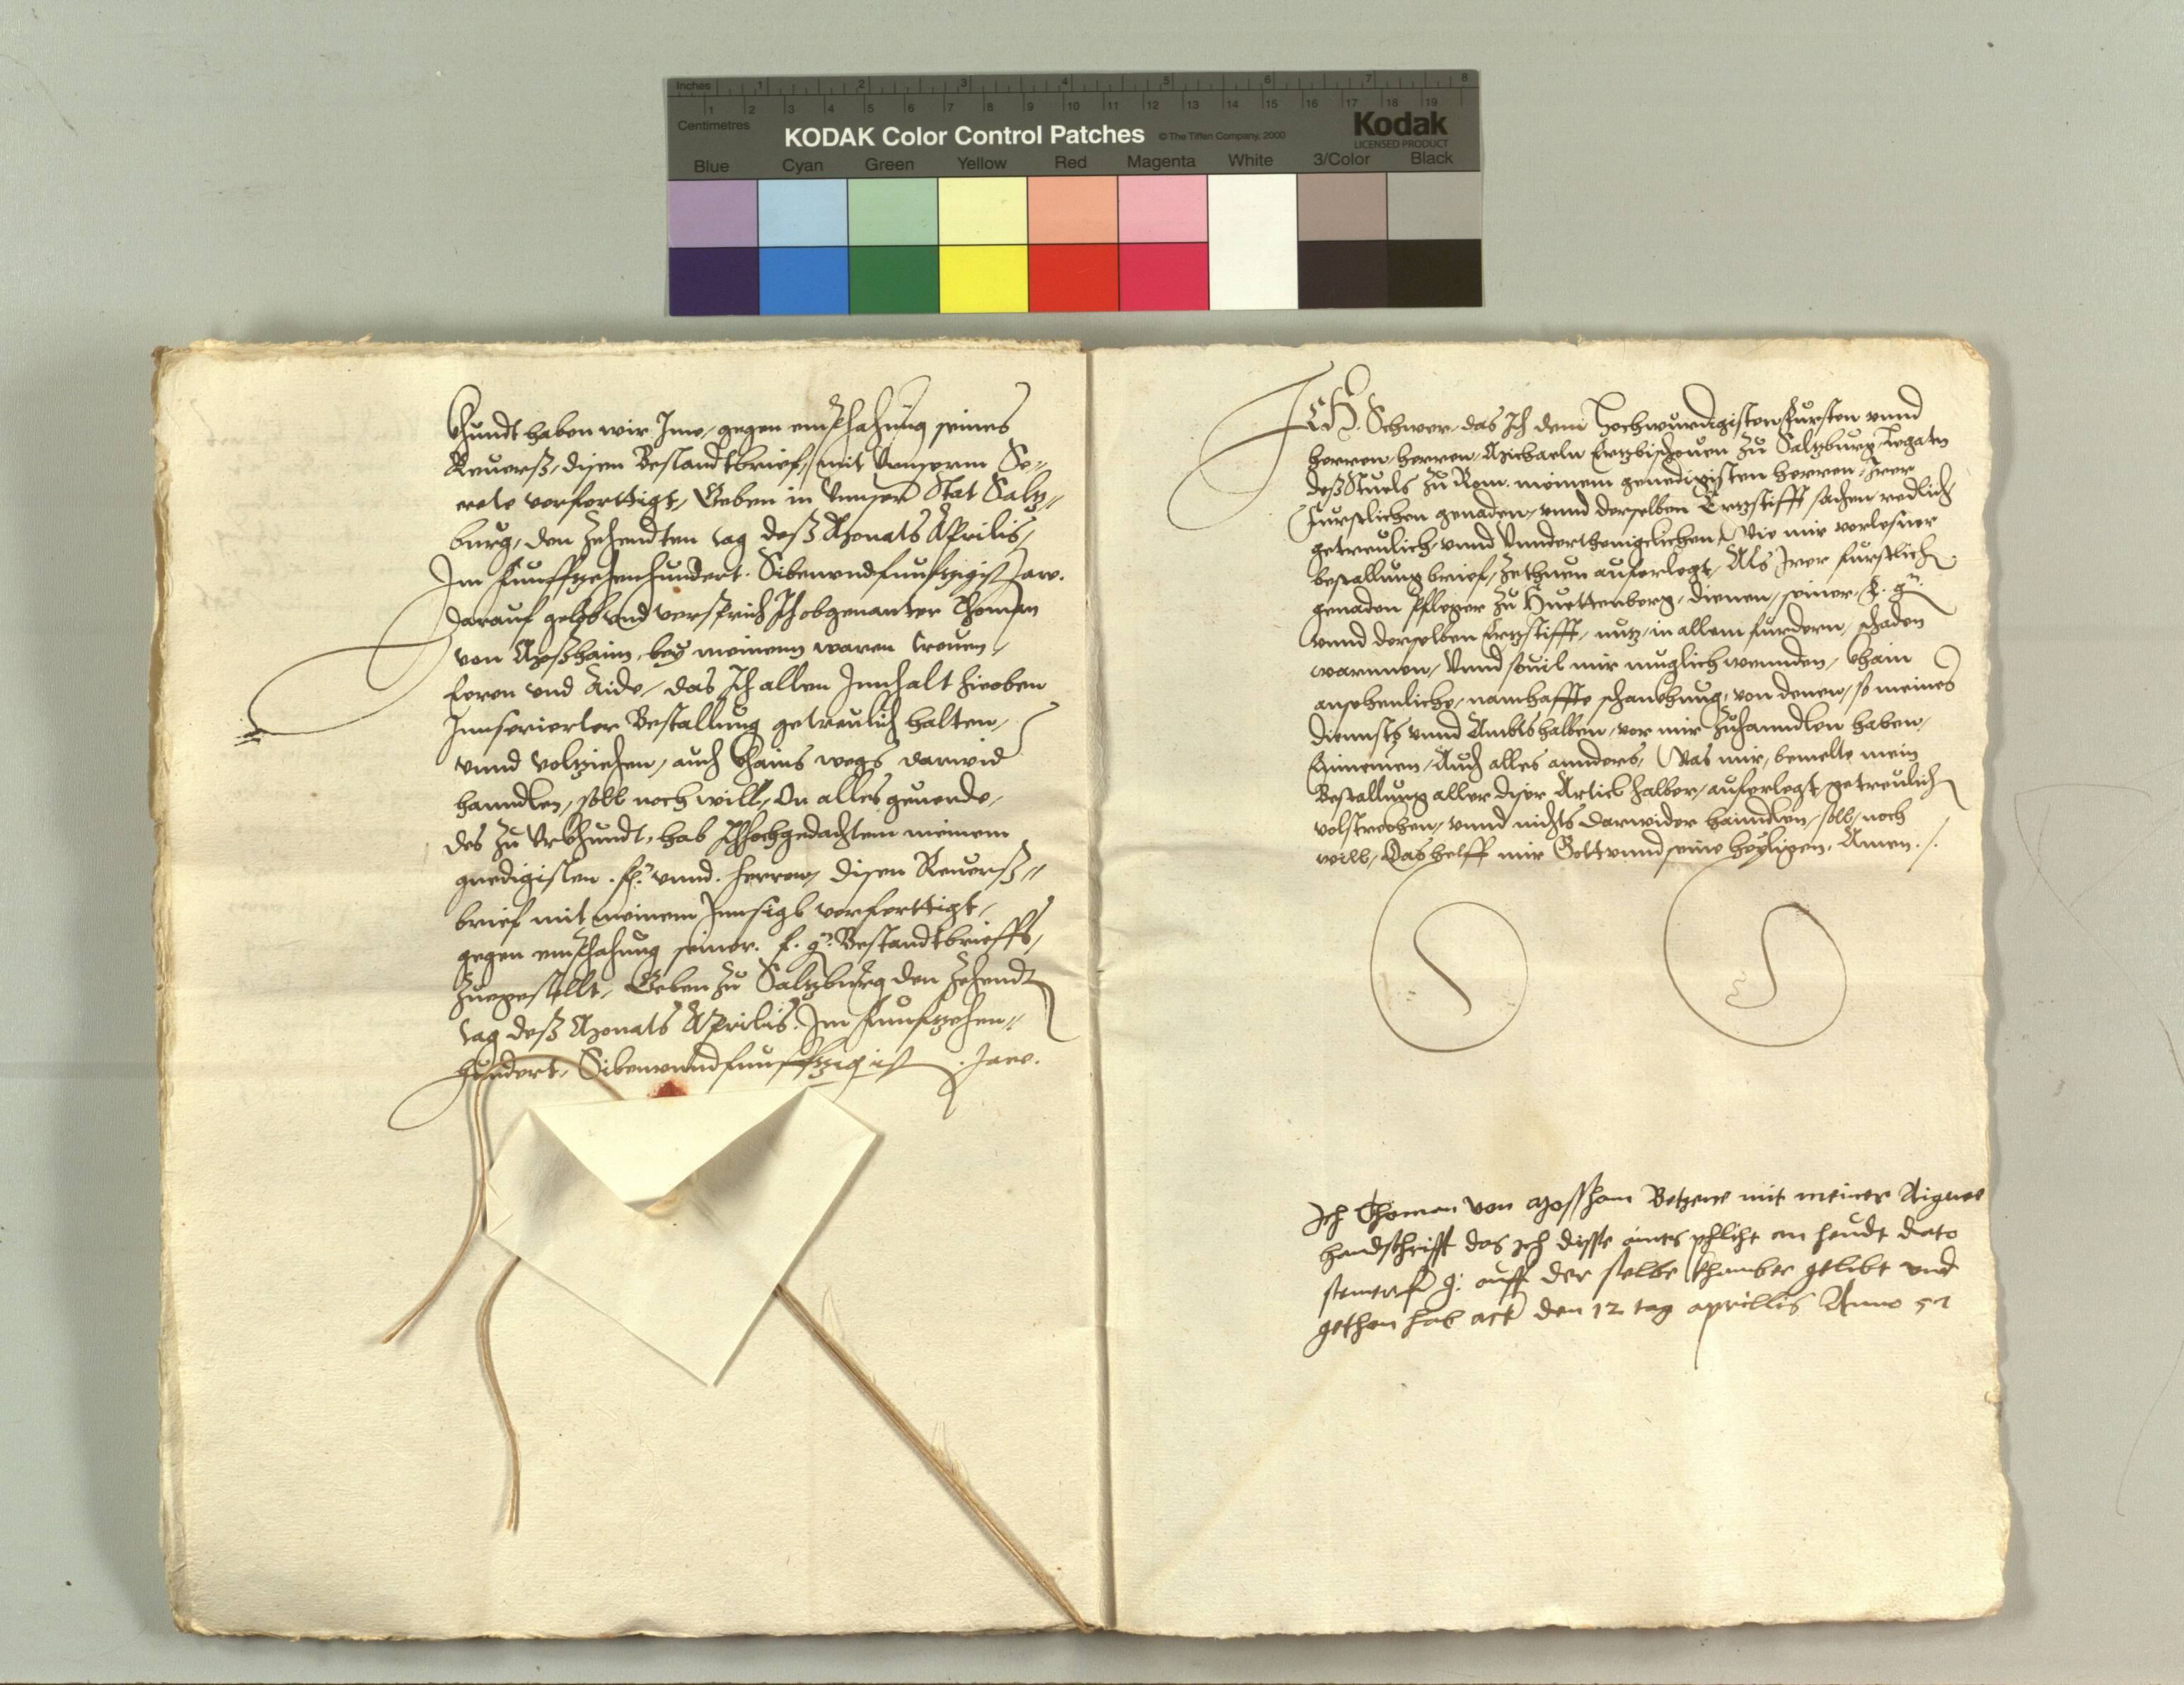 Inches 1 2 3 4 5 6 7 8
1 2 3 4 5 6 7 8 9 10 11 12 13 14 15 16 17 18 19
Centimetres
KODAK Color Control Patches © The Tiffen Company, 2000 Kodak
LICENSED PRODUCT
Blue Cyan Green Yellow Red Magenta White 3/Color Black
khundt haben wir Ime, gegen emphahung seines
Reuerß, disen Bestandtbrief, mit Vnnserm Se-
crete verferttigt, Geben in Vnnser Stat Saltz-
burg, den Zehendten tag deß Monats Aprilis,
Im funffzehenhundert. Sibenvndfunfftzigist Jare.
Darauf gelob vnd versprich Ich obgenanter Thoman
von Moßhaim, bey meinenn waren treuen,
Eeren vnd Aide, das Ich allen Innhalt hieoben
Innserierter Bestallung getreulich halten,
vnnd voltziehen, auch khains wegs darwid
hanndlen, soll noch will, On alles geuerde,
des zu Vrkhundt, hab Ich hochgedachtem meinem
gnedigisten. f. vnnd. herren, disen Reuerß-
brief mit meinem Innsigl verferttigt,
gegen emphahung seiner. f. g. Bestandtbrieffs,
zuegestellt, Geben zu Saltzburg den Zehendt
tag deß Monats Aprilis. Im funfftzehen-
hundert, Sibenvnndfunfftzigist. Jare.
ICH. Schwer, das Ich dem Hochwurdigisten Fursten vnnd
herren, herren, Michaeln Ertzbischouen zu Saltzburg, Legatn
deß Stuels zu Rom. meinem genedigisten herren, Irer
Furstlichen genaden, vnnd derselben Ertzstifft sachen, redlich
getreulich, vnnd Vnnderthenigclichen, Wie mir verlesner
bestallung brief, zethuen auferlegt, Als Irer furstlich
genaden Pfleger zu Huettenberg, dienen, seiner, F. g.
vnnd derselben Ertzstifft, nutz, in allem furdern, schaden
warnnen, Vnnd souil mir muglich wennden, khain
ansehenliche, namhaffte schankhung, von denen, so meines
diennsts vnnd Ambtshalben, vor mir zuhanndlen haben,
Einnemen, Auch alles annders, Was mir, bemelte mein
Bestallung aller diser Artickl halber, auferlegt, getreulich
volstrecken, vnnd nichts darwider hanndlen, soll, noch
will, Das helff mir Gott vnnd seine heyligen. Amen.
Ich Thoman von Mosham Bekhene mit meiner Aigner
handschrifft das ich disse amtes phlicht an heudt dato
seiner f. g. auff der selbe khamber gelobt vnd
gethan hab act den 12 tag aprillis Anno 57